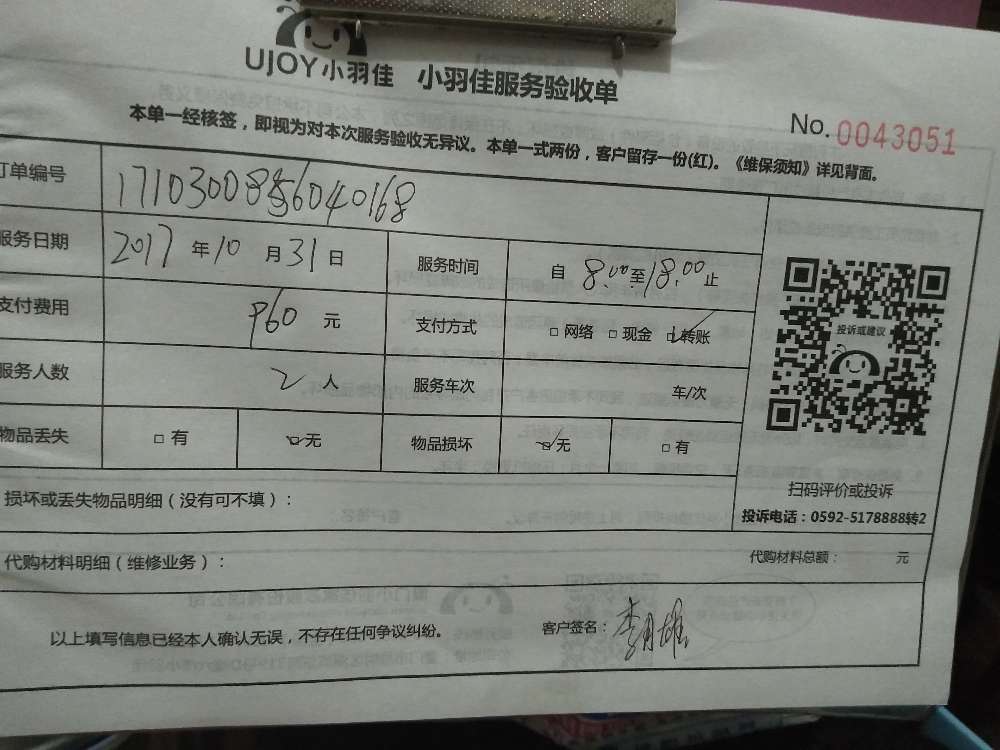 UJOY小羽佳 小羽佳服务验收单
No. 0043051
本单一经核签，即视为对本次服务验收无异议。本单一式两份，客户留存一份(红)。《维保须知》详见背面。
订单编号 17103008556040168
服务日期 2017 年 10 月 31 日 服务时间 自 8:00 至 18:00 止
支付费用 960 元 支付方式 □ 网络 □ 现金 ☑ 转账
服务人数 2 人 服务车次 车/次
物品丢失 □ 有 ☑ 无 物品损坏 ☑ 无 □ 有
投诉或建议
扫码评价或投诉
投诉电话：0592-5178888转2
损坏或丢失物品明细（没有可不填）：
代购材料明细（维修业务）： 代购材料总额： 元
以上填写信息已经本人确认无误，不存在任何争议纠纷。 客户签名：